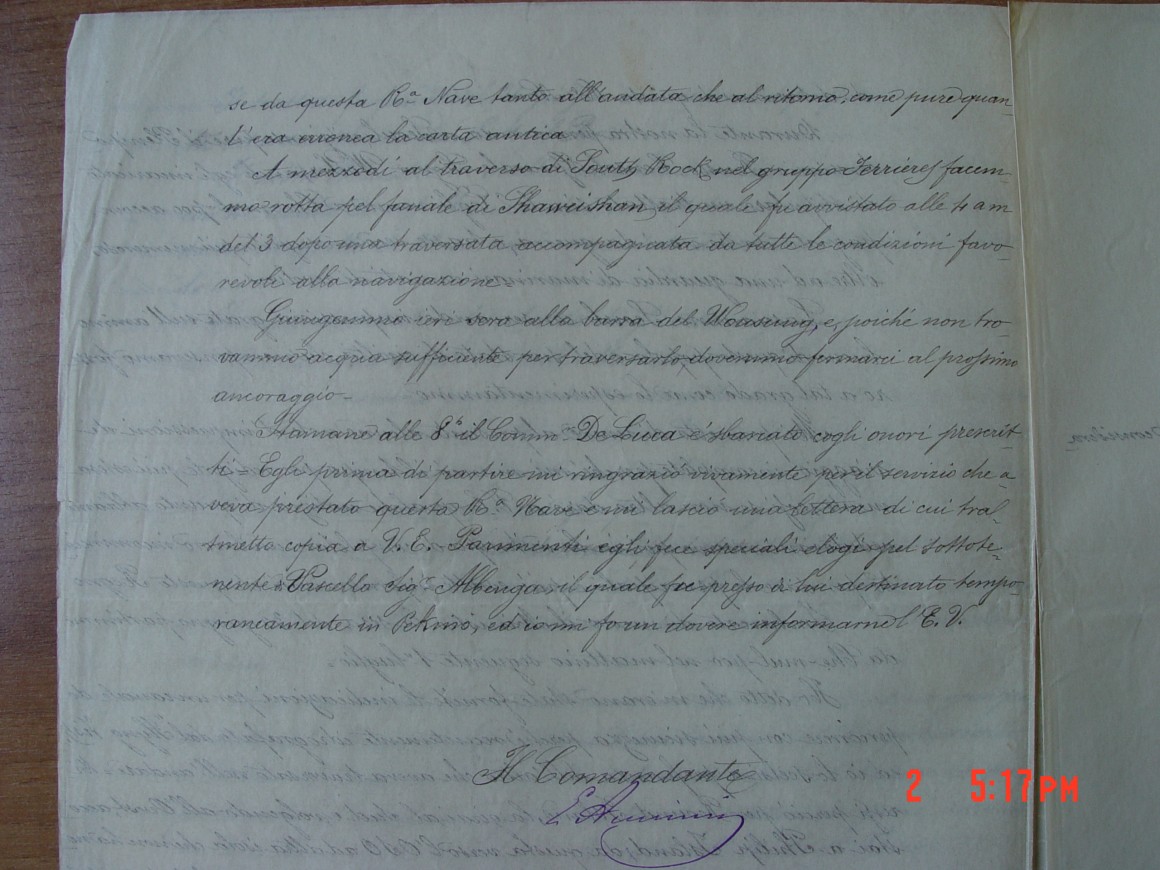 se da questa R.ª Nave tanto all'andata che al ritorno, come pure quan-
t'era erronea la carta antica
A mezzodí al traverso di South Rock nel gruppo Ferrieres facem-
mo rotta pel fanale di Shaweishan, il quale fu avvistato alle 4 am
del 3 dopo una traversata accompagnata da tutte le condizioni favo-
revoli alla navigazione.
Giungemmo ieri sera alla barra del Woosung, e, poiché non tro-
vammo acqua sufficiente per traversarlo, dovemmo fermarci al prossimo
ancoraggio-
Stamane alle 8ʰ il Comm. De Luca é sbarcato cogli onori prescrit-
ti= Egli prima di partire mi ringrazió vivamente per il servizio che a-
veva prestato questa R.ª Nave e mi lasció una lettera di cui tras-
metto copia a V.E.- Parimenti egli fece speciali elogi pel sottote-
nente Vascello Sig.r Albenga, il quale fu presso di lui destinato tempo-
raneamente in Pekino, ed io mi fo un dovere informarne l'E.V.
Il Comandante
2 5:17PM